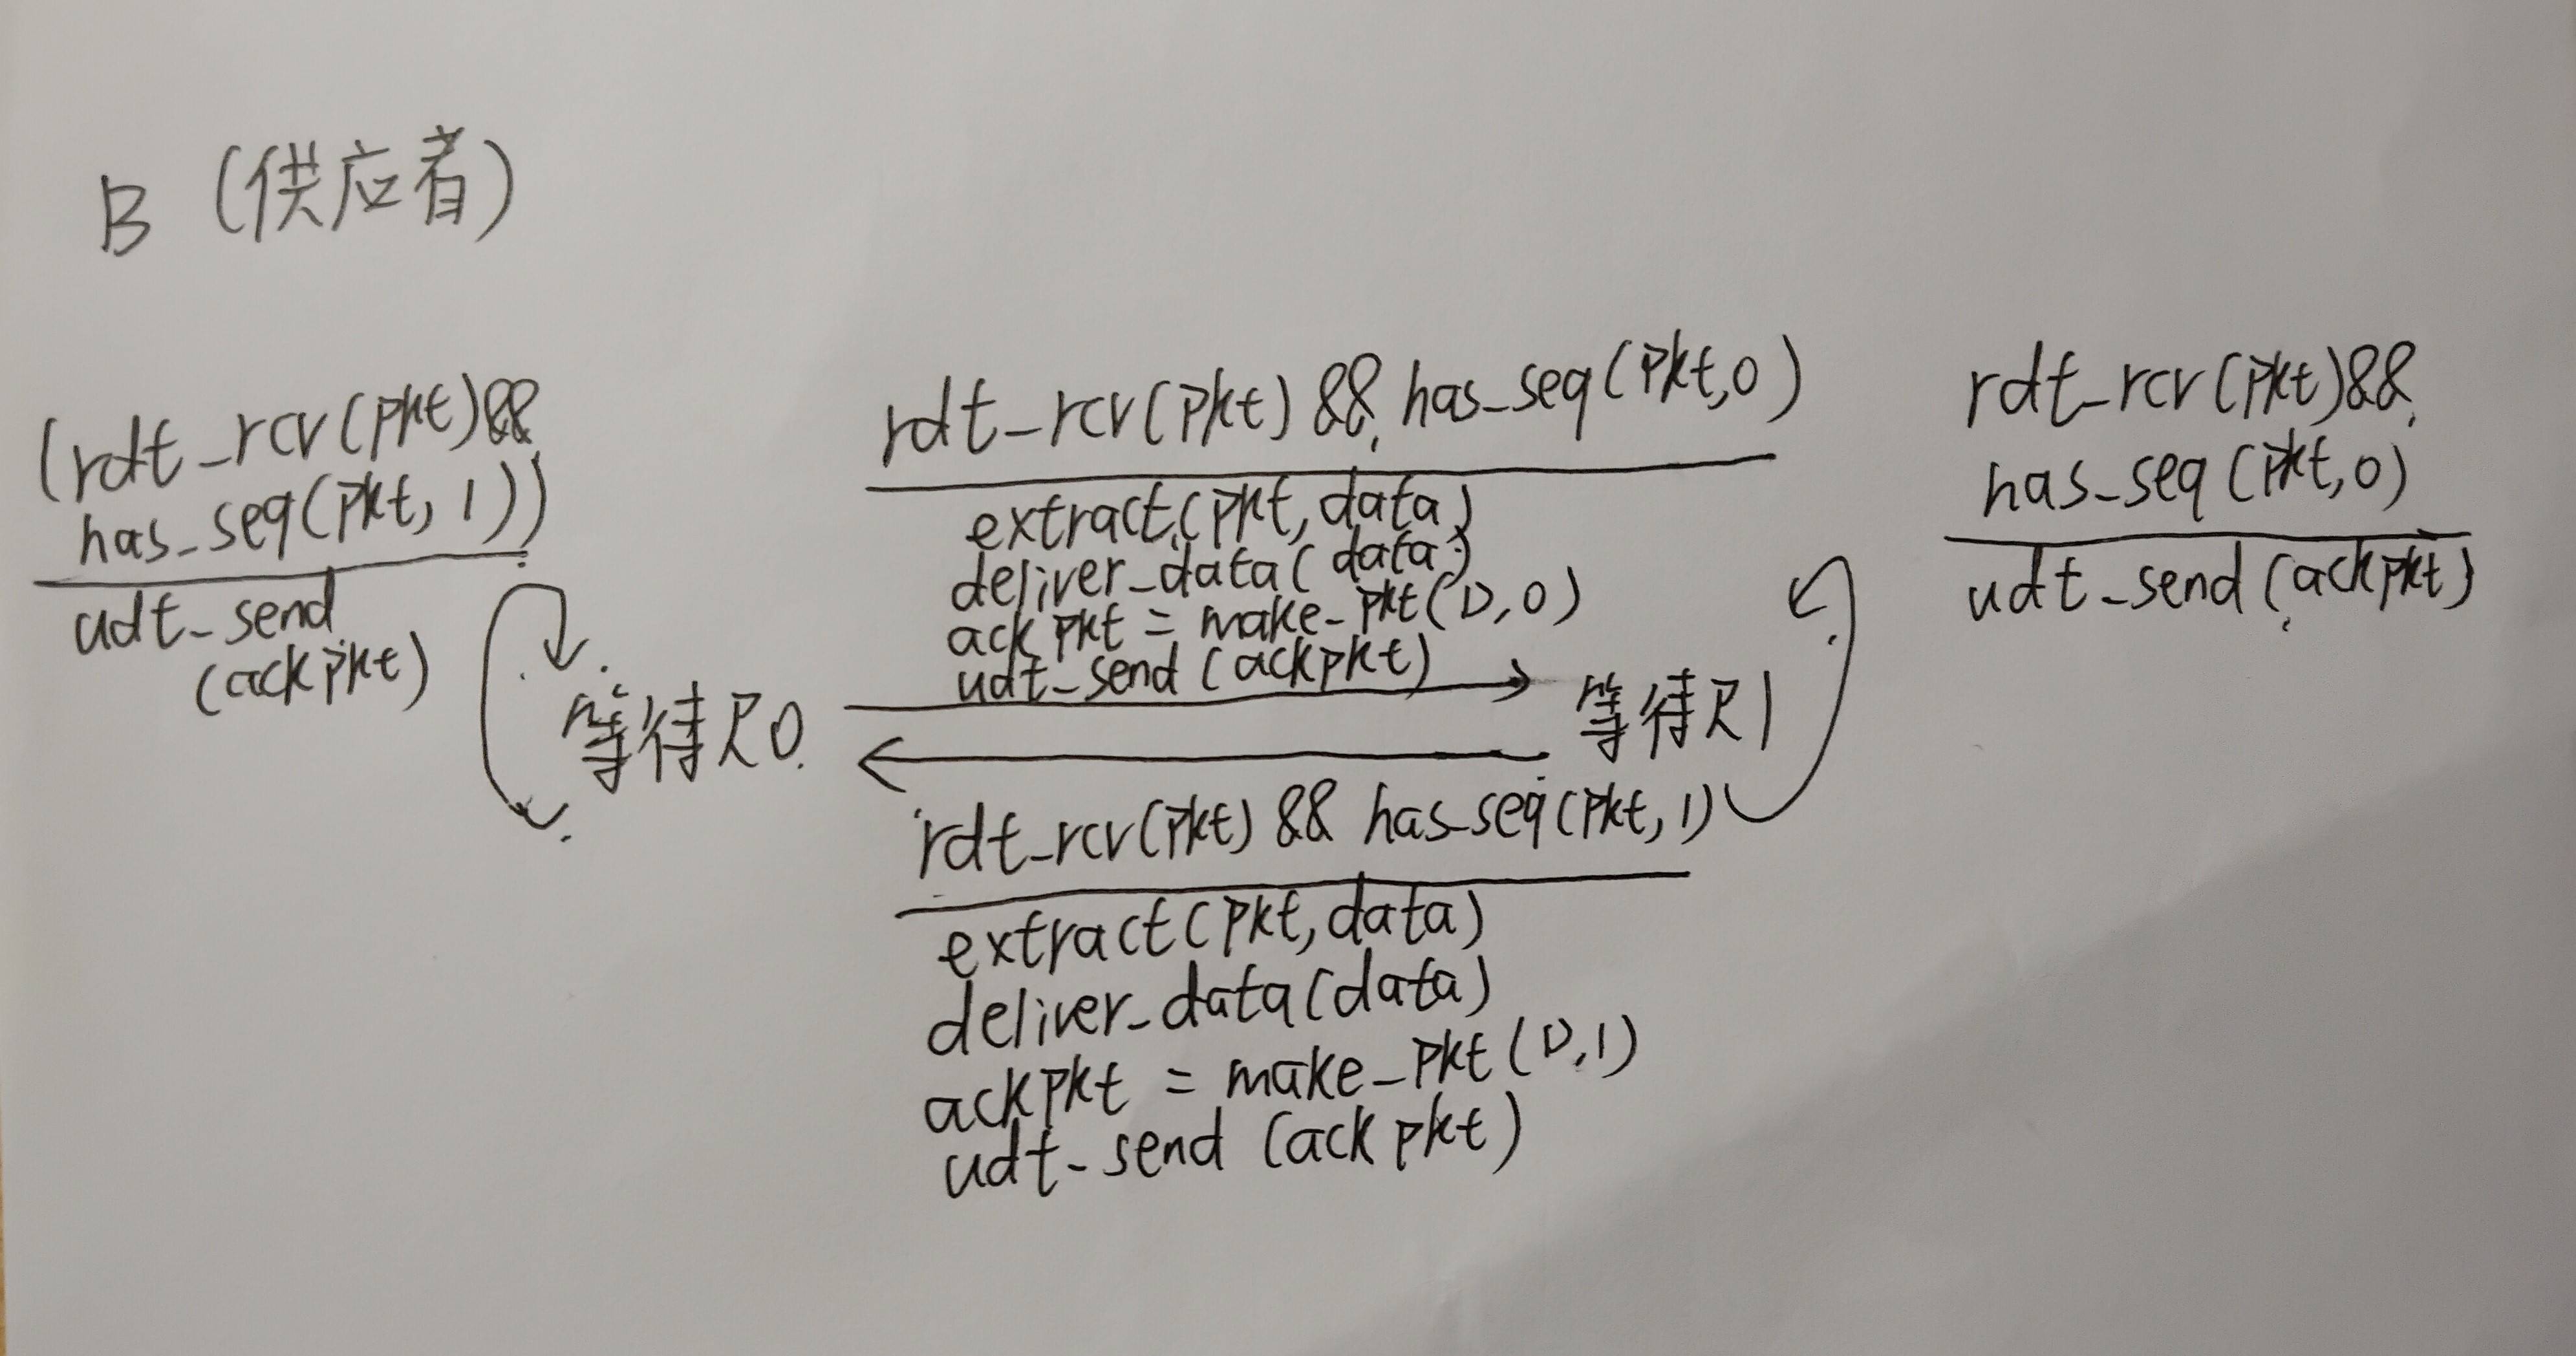 B (供应者)
(rdt_rcv(pkt)&&
has_seq(pkt, 1))
udt_send
(ackpkt)
rdt_rcv(pkt) && has_seq(pkt,0)
extract(pkt, data)
deliver_data(data)
ackpkt = make_pkt(D,0)
udt_send (ackpkt)
rdt_rcv(pkt)&&
has_seq(pkt,0)
udt_send(ackpkt)
等待R0
等待R1
rdt_rcv(pkt) && has_seq(pkt,1)
extract(pkt,data)
deliver_data(data)
ackpkt = make_pkt(D,1)
udt_send (ackpkt)